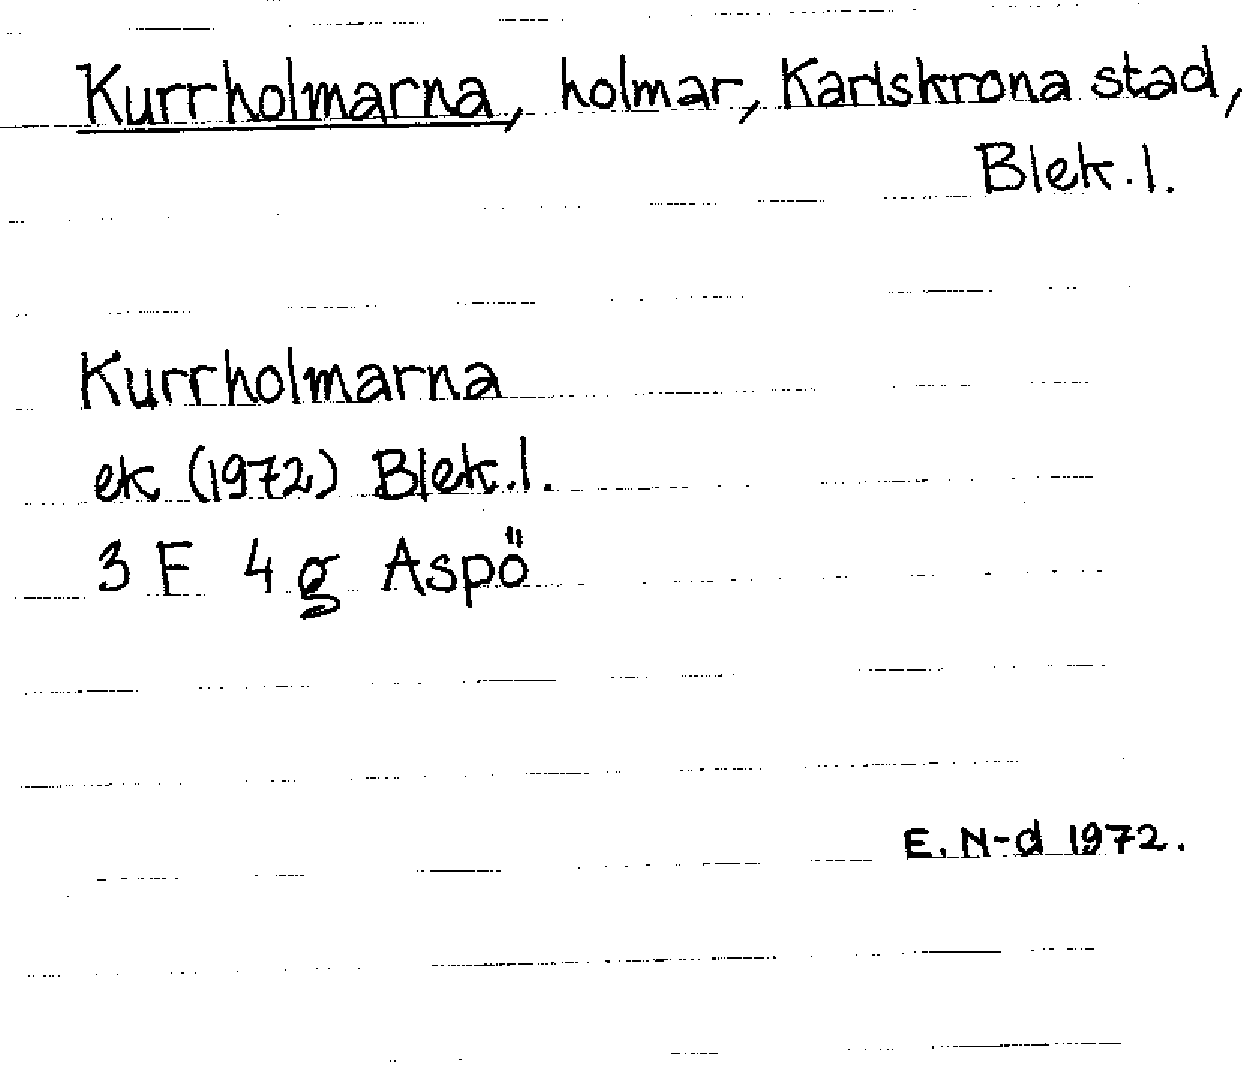 Kurrholmarna, holmar, Karlskrona stad,
Blek. l.
Kurrholmarna
ek (1972) Blek. l.
3 F 4 g Aspö
E. N-d 1972.